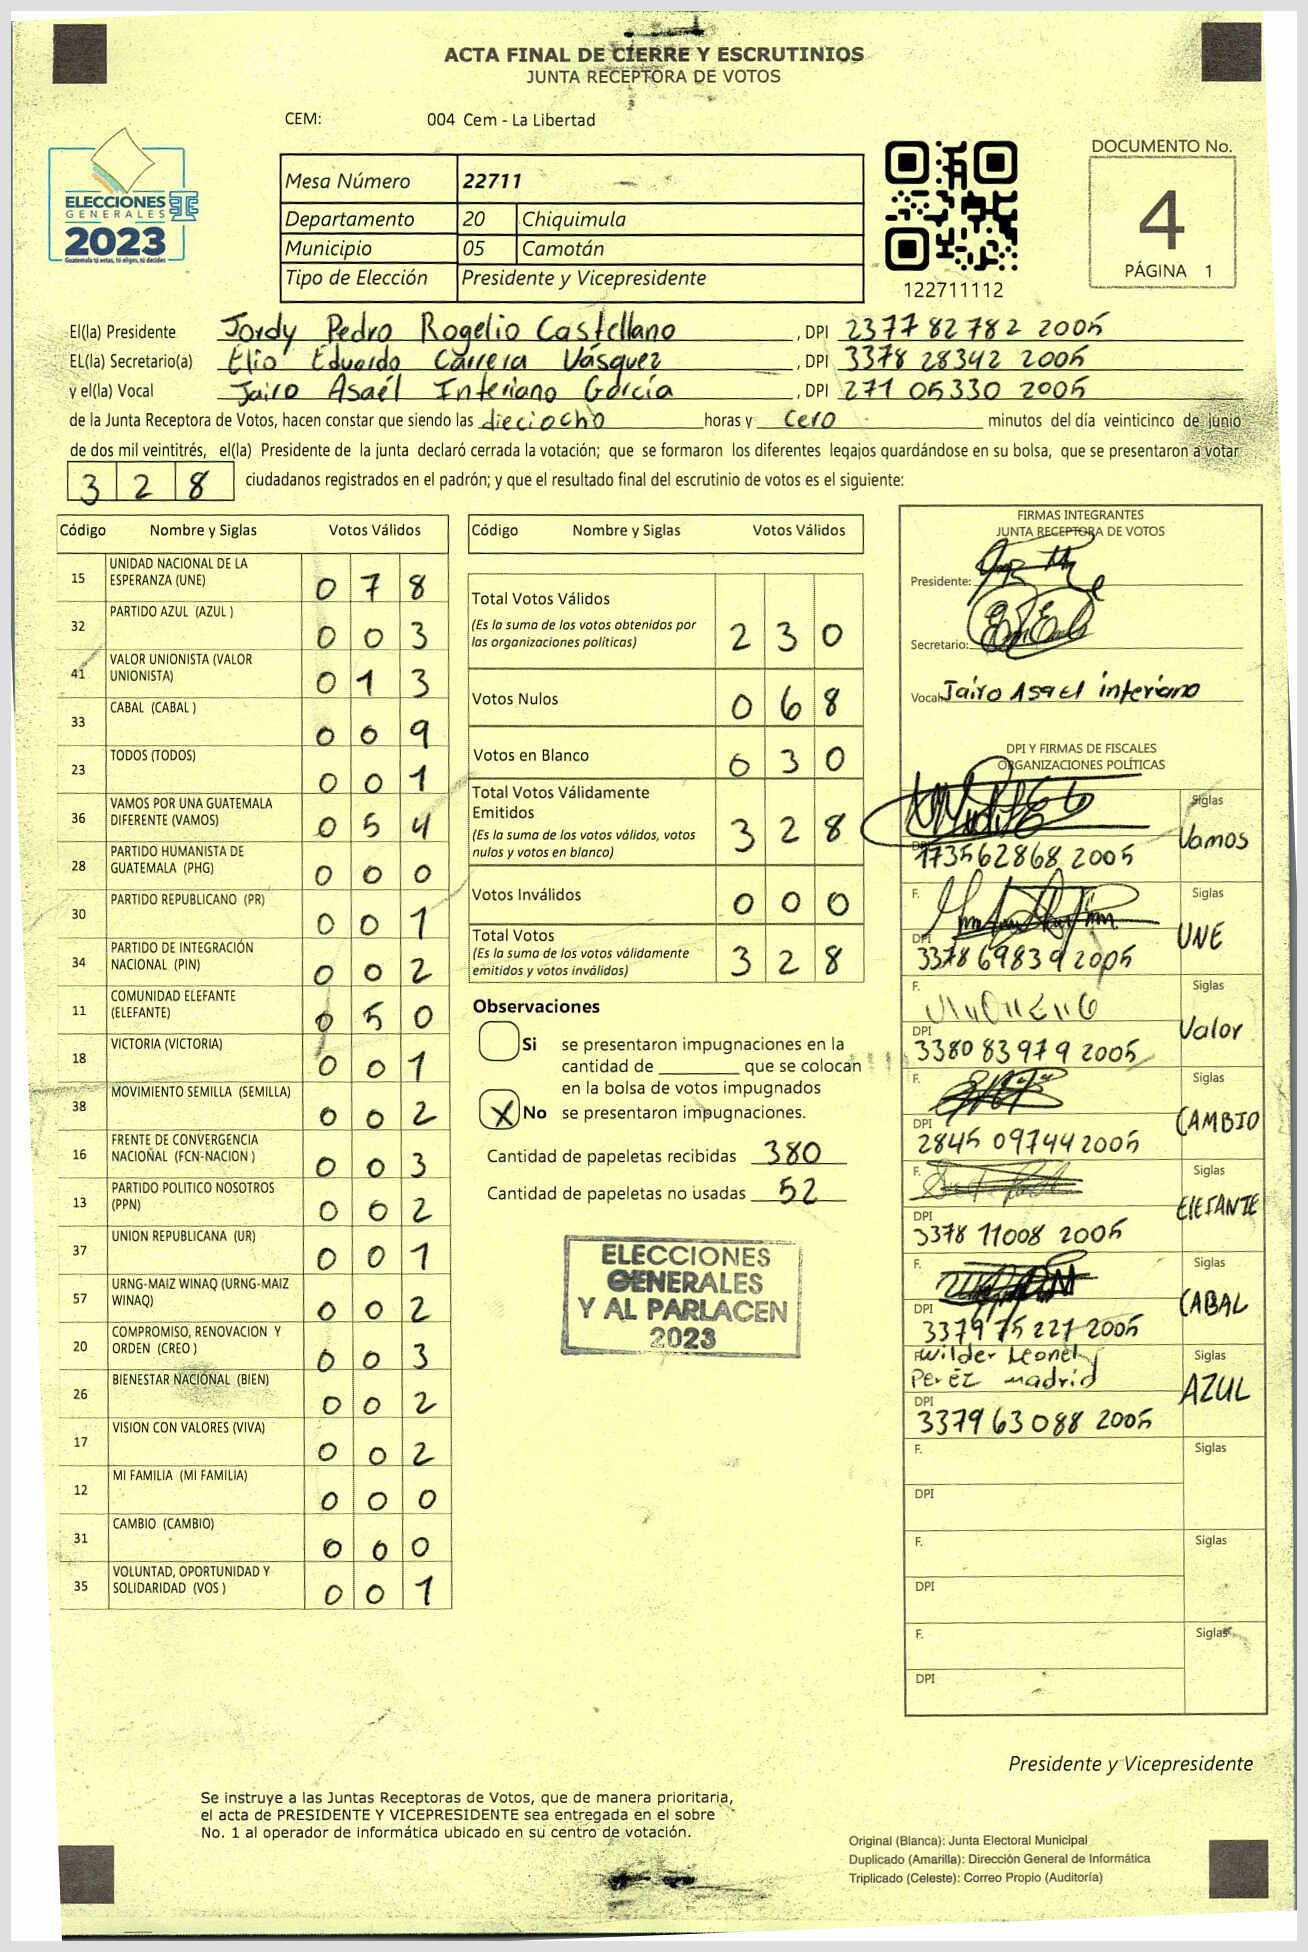 ACTA FINAL DE CIERRE Y ESCRUTINIOS
JUNTA RECEPTORA DE VOTOS
CEM: 004 Cem - La Libertad
ELECCIONES
GENERALES
2023
Guatemala tú votas, tú eliges, tú decides
Mesa Número 22711
Departamento 20 Chiquimula
Municipio 05 Camotán
Tipo de Elección Presidente y Vicepresidente
122711112
DOCUMENTO No.
4
PÁGINA 1
El(la) Presidente Jordy Pedro Rogelio Castellano, DPI 2377 82782 2005
EL(la) Secretario(a) Elio Eduardo Carrera Vásquez, DPI 3378 28342 2005
y el(la) Vocal Jairo Asaél Interiano García, DPI 271 05330 2005
de la Junta Receptora de Votos, hacen constar que siendo las dieciocho horas y cero minutos del día veinticinco de junio
de dos mil veintitrés, el(la) Presidente de la junta declaró cerrada la votación; que se formaron los diferentes legajos quardándose en su bolsa, que se presentaron a votar
3 2 8 ciudadanos registrados en el padrón; y que el resultado final del escrutinio de votos es el siguiente:
Código Nombre y Siglas Votos Válidos
15 UNIDAD NACIONAL DE LA ESPERANZA (UNE) 0 7 8
32 PARTIDO AZUL (AZUL ) 0 0 3
41 VALOR UNIONISTA (VALOR UNIONISTA) 0 1 3
33 CABAL (CABAL ) 0 0 9
23 TODOS (TODOS) 0 0 1
36 VAMOS POR UNA GUATEMALA DIFERENTE (VAMOS) 0 5 4
28 PARTIDO HUMANISTA DE GUATEMALA (PHG) 0 0 0
30 PARTIDO REPUBLICANO (PR) 0 0 1
34 PARTIDO DE INTEGRACIÓN NACIONAL (PIN) 0 0 2
11 COMUNIDAD ELEFANTE (ELEFANTE) 0 5 0
18 VICTORIA (VICTORIA) 0 0 1
38 MOVIMIENTO SEMILLA (SEMILLA) 0 0 2
16 FRENTE DE CONVERGENCIA NACIONAL (FCN-NACION ) 0 0 3
13 PARTIDO POLITICO NOSOTROS (PPN) 0 0 2
37 UNION REPUBLICANA (UR) 0 0 1
57 URNG-MAIZ WINAQ (URNG-MAIZ WINAQ) 0 0 2
20 COMPROMISO, RENOVACION Y ORDEN (CREO ) 0 0 3
26 BIENESTAR NACIONAL (BIEN) 0 0 2
17 VISION CON VALORES (VIVA) 0 0 2
12 MI FAMILIA (MI FAMILIA) 0 0 0
31 CAMBIO (CAMBIO) 0 0 0
35 VOLUNTAD, OPORTUNIDAD Y SOLIDARIDAD (VOS ) 0 0 1
Código Nombre y Siglas Votos Válidos
Total Votos Válidos 2 3 0
(Es la suma de los votos obtenidos por
las organizaciones políticas)
Votos Nulos 0 6 8
Votos en Blanco 0 3 0
Total Votos Válidamente
Emitidos 3 2 8
(Es la suma de los votos válidos, votos
nulos y votos en blanco)
Votos Inválidos 0 0 0
Total Votos 3 2 8
(Es la suma de los votos válidamente
emitidos y votos inválidos)
Observaciones
Si se presentaron impugnaciones en la
cantidad de ________ que se colocan
en la bolsa de votos impugnados
X No se presentaron impugnaciones.
Cantidad de papeletas recibidas 380
Cantidad de papeletas no usadas 52
ELECCIONES
GENERALES
Y AL PARLACEN
2023
FIRMAS INTEGRANTES
JUNTA RECEPTORA DE VOTOS
Presidente:
Secretario:
Vocal: Jairo Asael interiano
DPI Y FIRMAS DE FISCALES
ORGANIZACIONES POLÍTICAS
Siglas
Vamos
DPI 173562868 2005
F. Siglas
UNE
DPI 3378 69839 2005
F. Siglas
Valor
DPI
3380 83979 2005
F. Siglas
CAMBIO
DPI
2845 09744 2005
F. Siglas
ElEfANTE
DPI
3378 11008 2005
F. Siglas
CABAL
DPI
3379 75 227 2005
F. Wilder Leonel Siglas
Peréz madrid
AZUL
DPI
3379 63 088 2005
F. Siglas
DPI
F. Siglas
DPI
F. Siglas
DPI
Presidente y Vicepresidente
Se instruye a las Juntas Receptoras de Votos, que de manera prioritaria,
el acta de PRESIDENTE Y VICEPRESIDENTE sea entregada en el sobre
No. 1 al operador de informática ubicado en su centro de votación.
Original (Blanca): Junta Electoral Municipal
Duplicado (Amarilla): Dirección General de Informática
Triplicado (Celeste): Correo Propio (Auditoría)